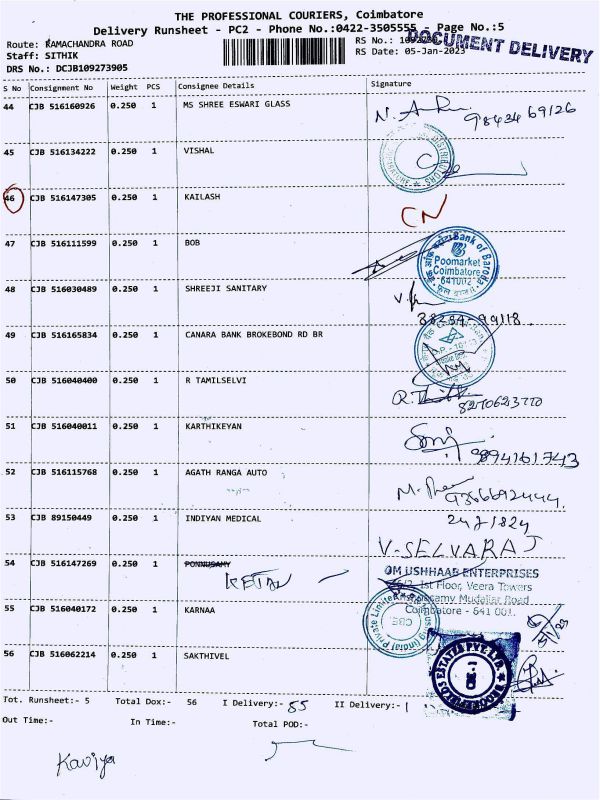 THE PROFESSIONAL COURIERS, Coimbatore
Delivery Runsheet - PC2 - Phone No.:0422-3505555 - Page No.:5
DOCUMENT DELIVERY
Route: RAMACHANDRA ROAD
RS No.:
Staff: SITHIK
RS Date: 05-Jan-2023
DRS No.: DCJB109273905
S No Consignment No Weight PCS Consignee Details Signature
44 CJB 516160926 0.250 1 MS SHREE ESWARI GLASS
45 CJB 516134222 0.250 1 VISHAL
46 CJB 516147305 0.250 1 KAILASH CN
47 CJB 516111599 0.250 1 BOB
Bank of Baroda
Poomarket
Coimbatore
641002
48 CJB 516030489 0.250 1 SHREEJI SANITARY
49 CJB 516165834 0.250 1 CANARA BANK BROKEBOND RD BR
50 CJB 516040400 0.250 1 R TAMILSELVI
51 CJB 516040011 0.250 1 KARTHIKEYAN
9894161743
52 CJB 516115768 0.250 1 AGATH RANGA AUTO
53 CJB 89150449 0.250 1 INDIYAN MEDICAL
V-SELVARAJ
54 CJB 516147269 0.250 1 PONNUSAMY
OM USHHAAB ENTERPRISES
1st Floor, Veera Towers
Mudaliar Road
Coimbatore - 641 001.
55 CJB 516040172 0.250 1 KARNAA
56 CJB 516062214 0.250 1 SAKTHIVEL
Tot. Runsheet:- 5 Total Dox:- 56 I Delivery:- 55 II Delivery:- 1
Out Time:- In Time:- Total POD:-
Kaviya